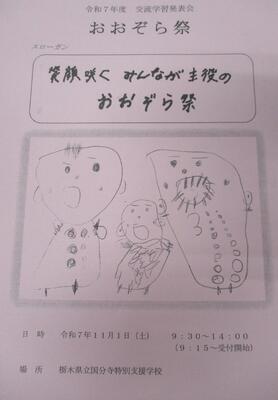 令和７年度　交流学習発表会
おおぞら祭
スローガン
笑顔咲く みんなが主役の
おおぞら祭
日　時　令和７年１１月１日（土）　９：３０～１４：００
（９：１５～受付開始）
場　所　栃木県立国分寺特別支援学校